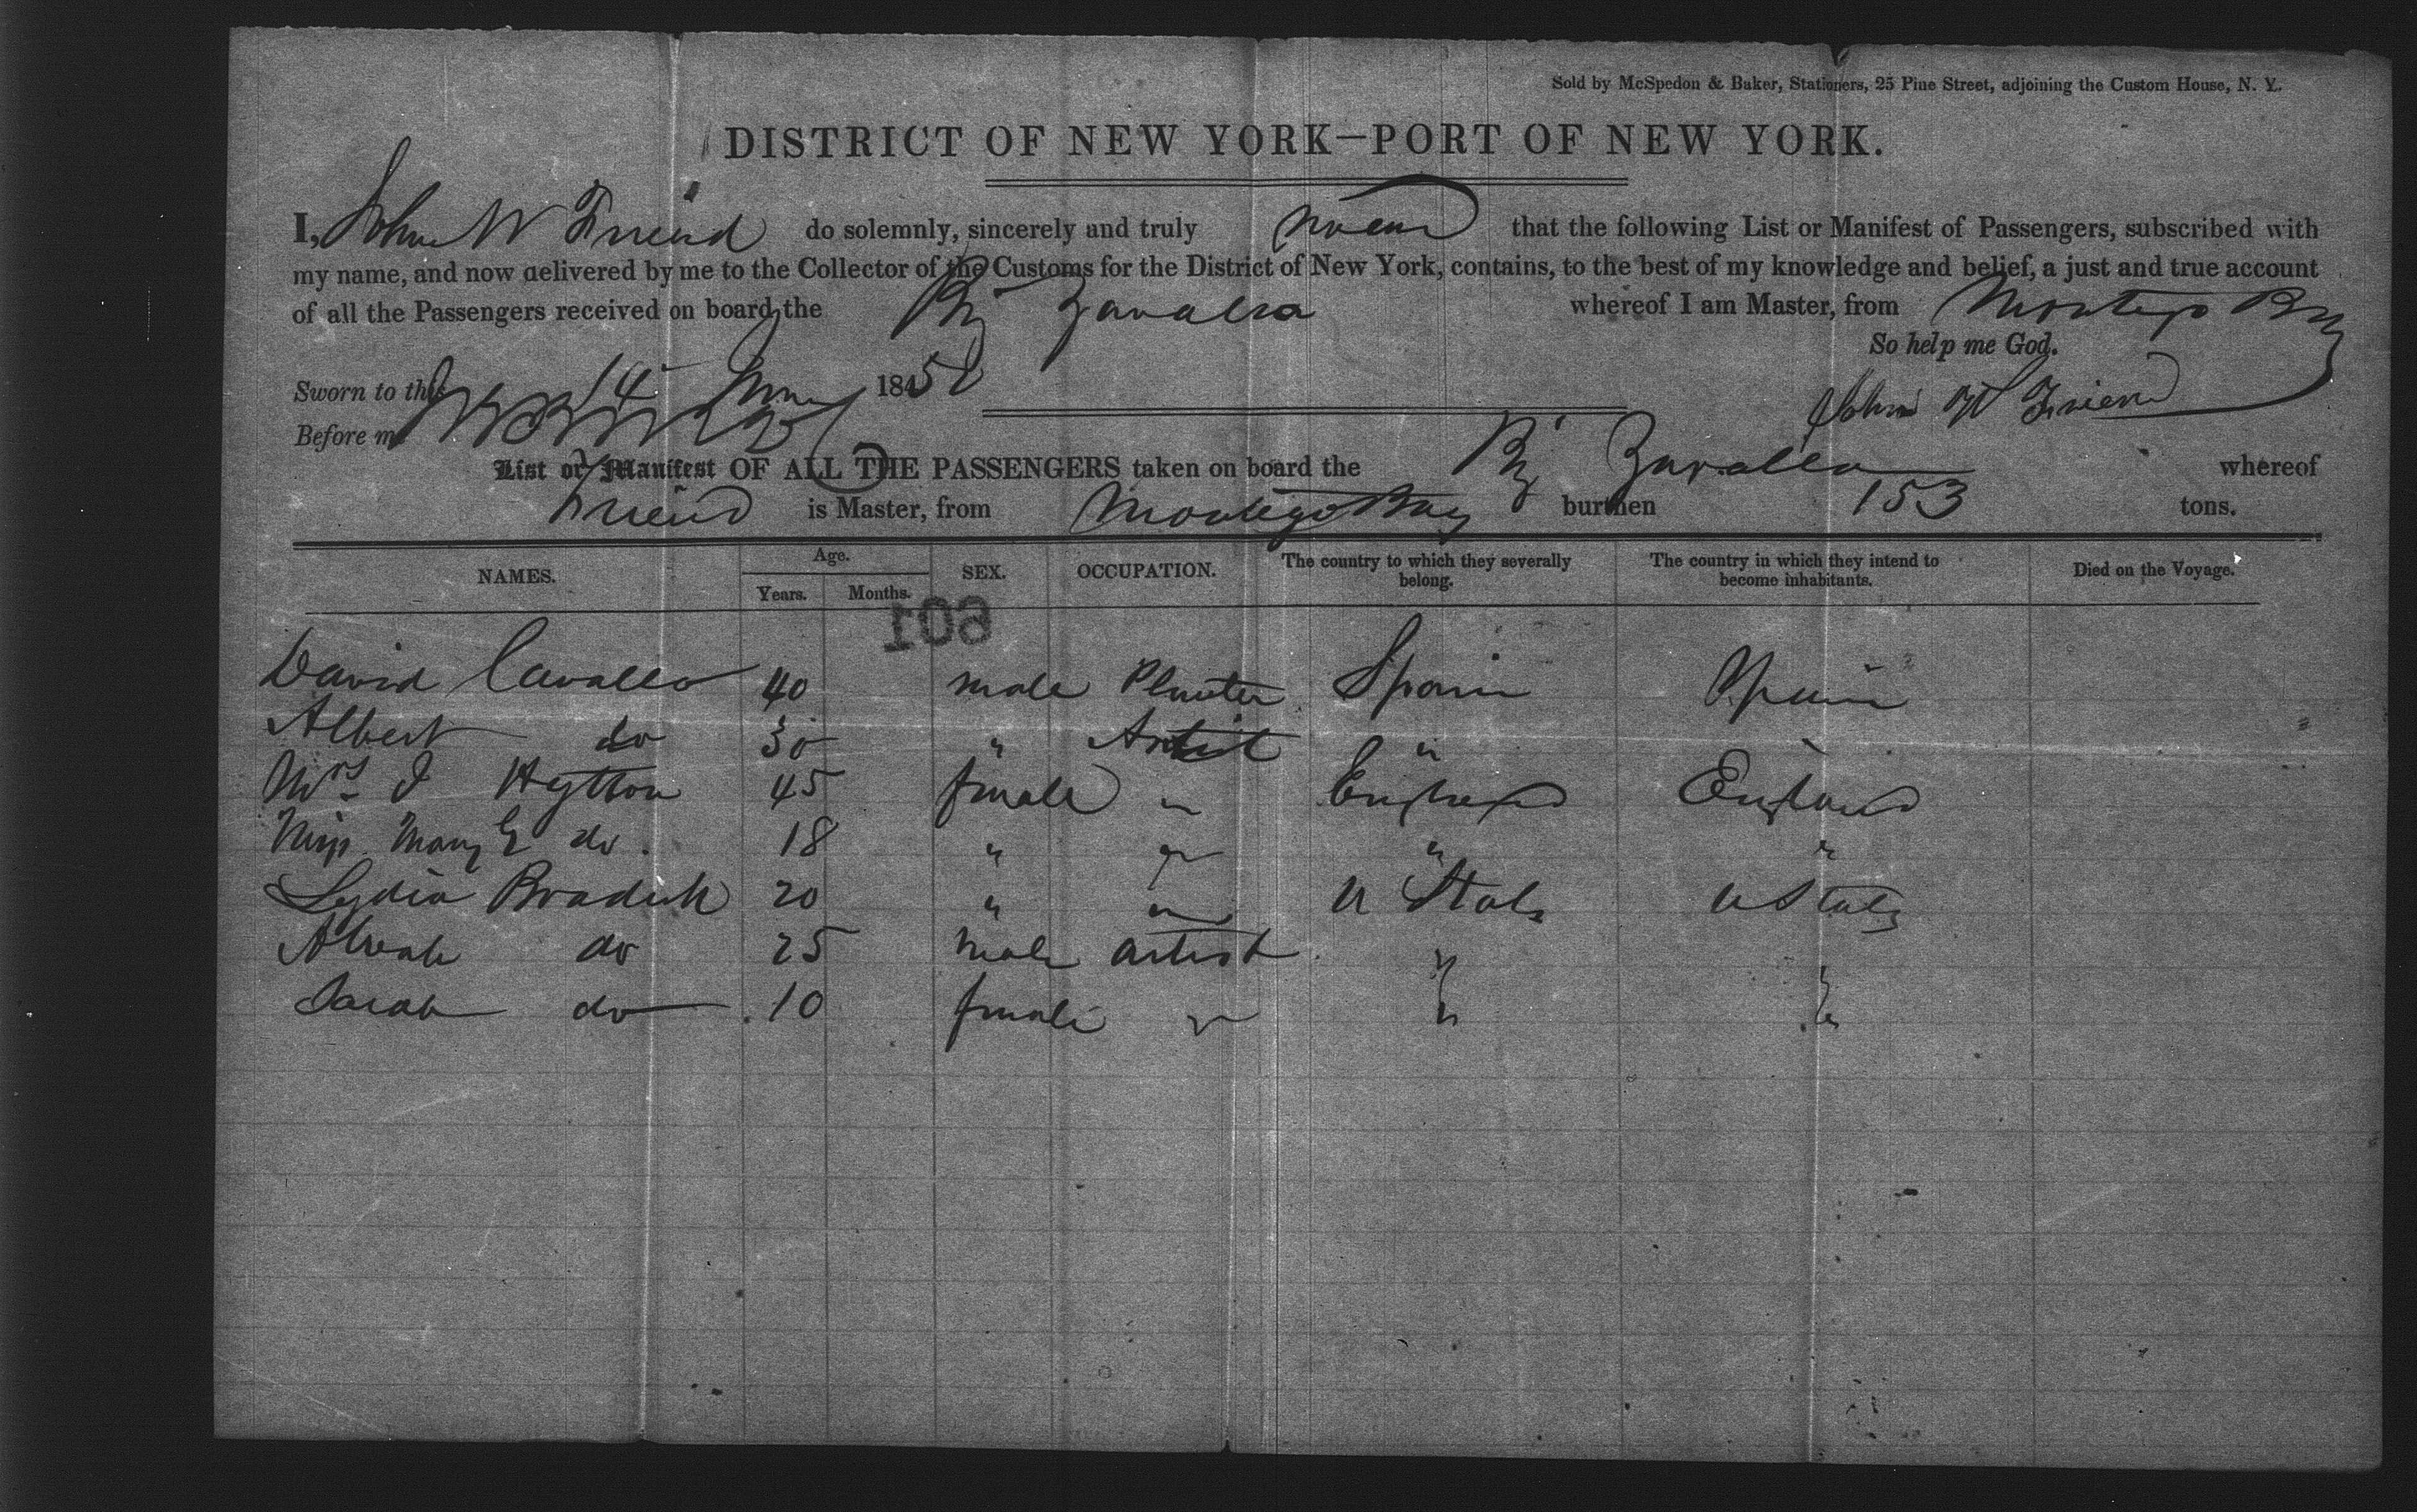 Sold by McSpedon & Baker, Stationers, 25 Pine Street, adjoining the Custom House, N. Y.
DISTRICT OF NEW YORK—PORT OF NEW YORK.
I, John W Friend do solemnly, sincerely and truly swear that the following List or Manifest of Passengers, subscribed with
my name, and now delivered by me to the Collector of the Customs for the District of New York, contains, to the best of my knowledge and belief, a just and true account
of all the Passengers received on board the Brig Zavalla whereof I am Master, from Montego Bay
So help me God.
Sworn to this 14 185
John W Friend
Before me
List or Manifest OF ALL THE PASSENGERS taken on board the Brig Zavalla whereof
Friend is Master, from Montego Bay burthen 153 tons.
NAMES. Age. Years. Months. SEX. OCCUPATION. The country to which they severally belong. The country in which they intend to become inhabitants. Died on the Voyage.
601
David Cavallo 40 male Planter Spain Spain
Albert do 30 " Artist "
Mrs J Hytton 45 female England England
Miss Mary E do 18 " " "
Lydia Bradish 20 " U Stats U Stats
Alvah do 25 male artist " "
Sarah do 10 female " "